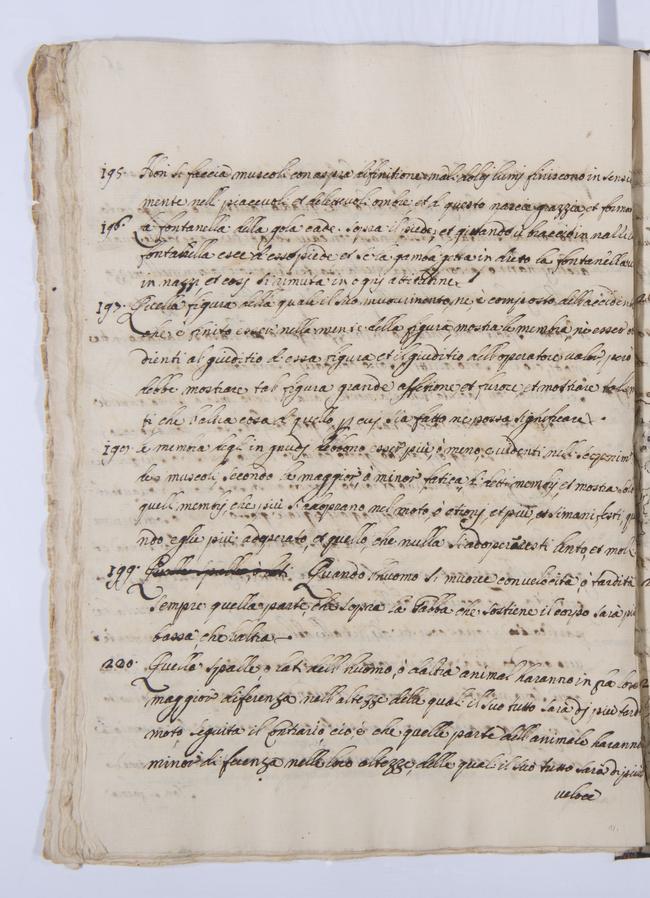 195. Non si faccia muscoli con aspra difinitione ma li dolci lumi finiscono in sensi
mente nelli piacevoli et dilettevoli ombre et da questo nascie grazzia et formo
196. La fontanella della gola cade sopra il piede, et gittando il braccio in nalli la
fontanella esce d'esso piede et se la gamba getta in dieto la fontanella va
in nazzi et cosi si rimuta in ogni attitudine
197. Quella figura della quale il suo movimento, no, è composto dell'accident
che è finito esser nella mente della figura, mostra le membra, no esser o
dienti al giuditio d'essa figura, et il giuditio dell'operatore però
debbe mostrare tal figura grande affetione et furore et mostrare tal
ti, che l'altra cosa di quello, p cui sia fatto ne possa significare.
Le membra degli in gnudi debbono esser piu, ò meno evidenti nelli scoprim
de muscoli secondo la maggior, ò minor fatica, di detti membri, et mostra
quelli membri che più s'adoprano nel moto, ò etioni, et più, si manifesti, qu
ndo eglie piu adoperato, et quello che nulla s'adoperi resti lento, et moll
199. Quelle spalle, ò lati Quando l'huomo si muove con velocità, ò tardità
sempre quella parte, che sopra la gabba che sostiene il corpo sarà piu
bassa che l'altra
220. Quelle spalle, o lati nell'huomo, ò d'altra animal haranno in fra loro
maggior diferenza nell'altezze delle quali il suo tutto sarà di piu tard
moto seguita il contrario cioè che quelle parte dell'animale haranno
minor diferenza nelle loro altezze, delle quali il suo tutto sarà di piu
veloce